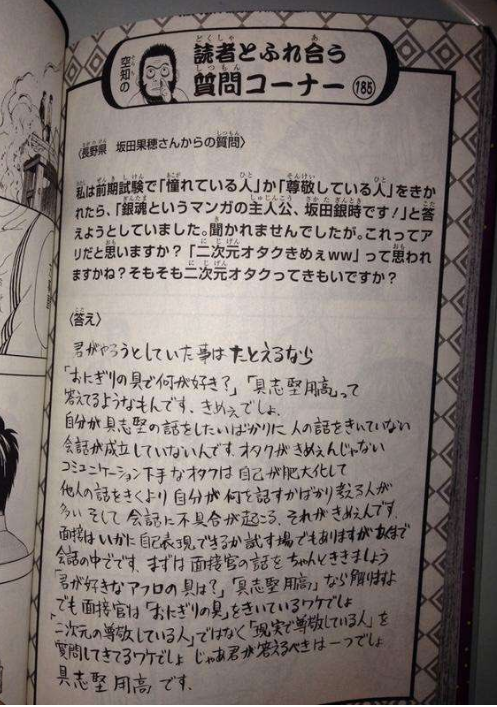 空知の
読者とふれ合う
質問コーナー 185
〈長野県 坂田果穂さんからの質問〉
私は前期試験で「憧れている人」か「尊敬している人」をきか
れたら、「銀魂というマンガの主人公、坂田銀時です!」と答
えようとしていました。聞かれませんでしたが。これってア
リだと思いますか?「二次元オタクきめぇww」って思われ
ますかね?そもそも二次元オタクってきもいですか?
〈答え〉
君がやろうとしていた事はたとえるなら
「おにぎりの具で何が好き?」「具志堅用高」って
答えてるようなもんです、きめぇでしょ。
自分が具志堅の話をしたいばかりに人の話をきいていない
会話が成立していないんです。オタクがきめぇんじゃない
コミュニケーション下手なオタクは自己が肥大化して
他人の話をきくより自分が何を話すかばかり考える人が
多い そして会話に不具合が起こる。それがきめぇんです
面接はいかに自己表現できるか試す場でもありますがあくまで
会話の中でです。まずは面接官の話をちゃんとききましょう
「君が好きなアフロの具は?」「具志堅用高」なら解りますよ
でも面接官は「おにぎりの具」をきいているワケでしょ
「二次元の尊敬している人」ではなく「現実で尊敬している人」を
質問してきてるワケでしょ じゃあ君が答えるべきは一つでしょ
具志堅用高です。